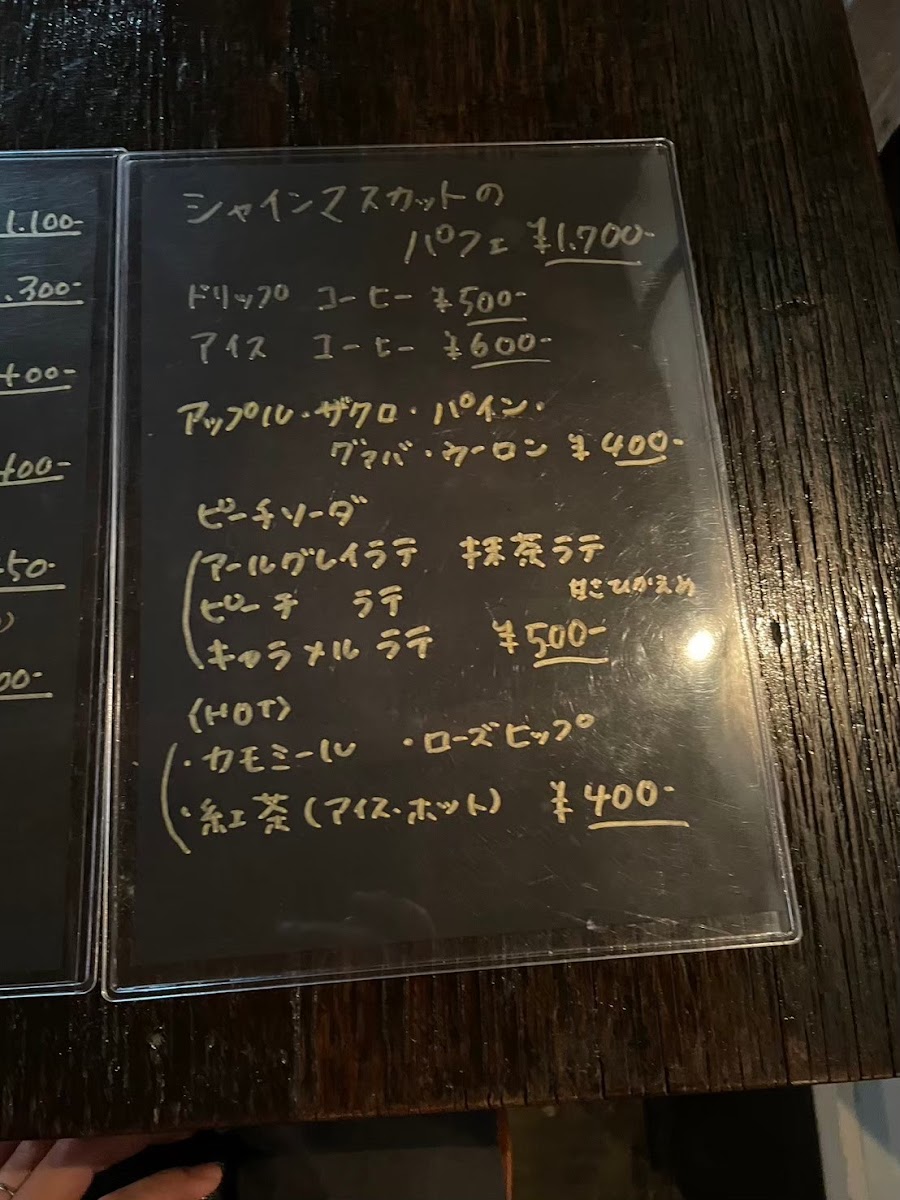 1.100-
.300-
00-
00-
50-
)
00-
シャインマスカットの
パフェ ¥1.700-
ドリップ コーヒー ¥500-
アイス コーヒー ¥600-
アップル・ザクロ・パイン・
グァバ・ウーロン ¥400-
ピーチソーダ
アールグレイラテ 抹茶ラテ
甘さひかえめ
ピーチ ラテ
キャラメル ラテ ¥500-
〈HOT〉
・カモミール ・ローズヒップ
・紅茶(アイス・ホット) ¥400-